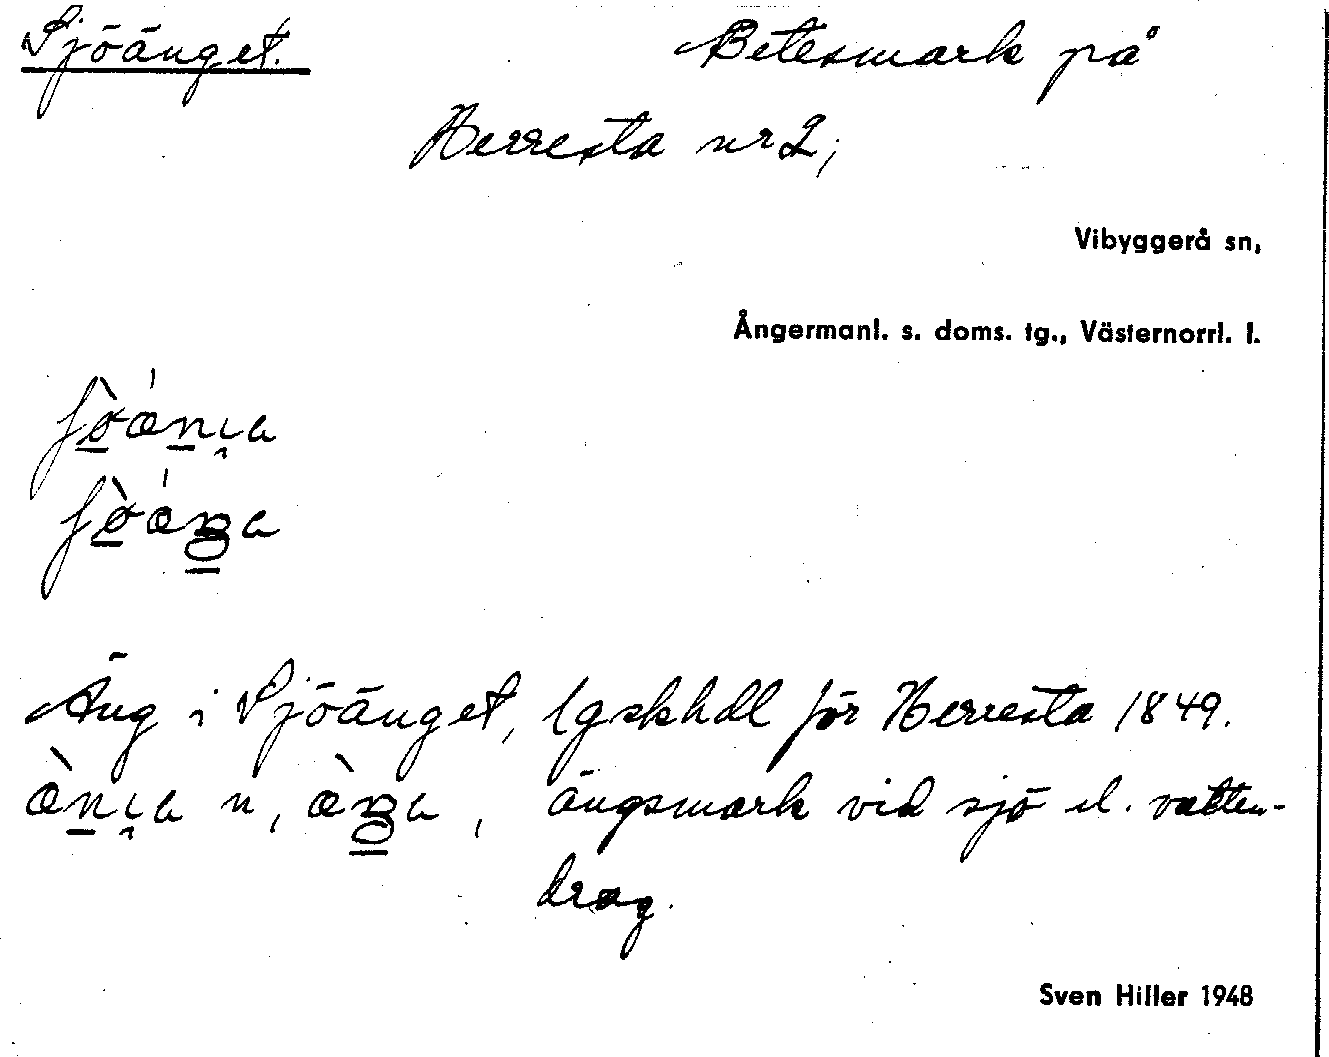 Sjöänget. Betesmark på
Herresta nr 2;
Vibyggerå sn,
Ångermanl. s. doms. tg., Västernorrl. l.
Äng i Sjöänget, lgskhdl för Herresta 1849.
n, ängsmark vid sjö el. vatten-
drag.
Sven Hiller 1948